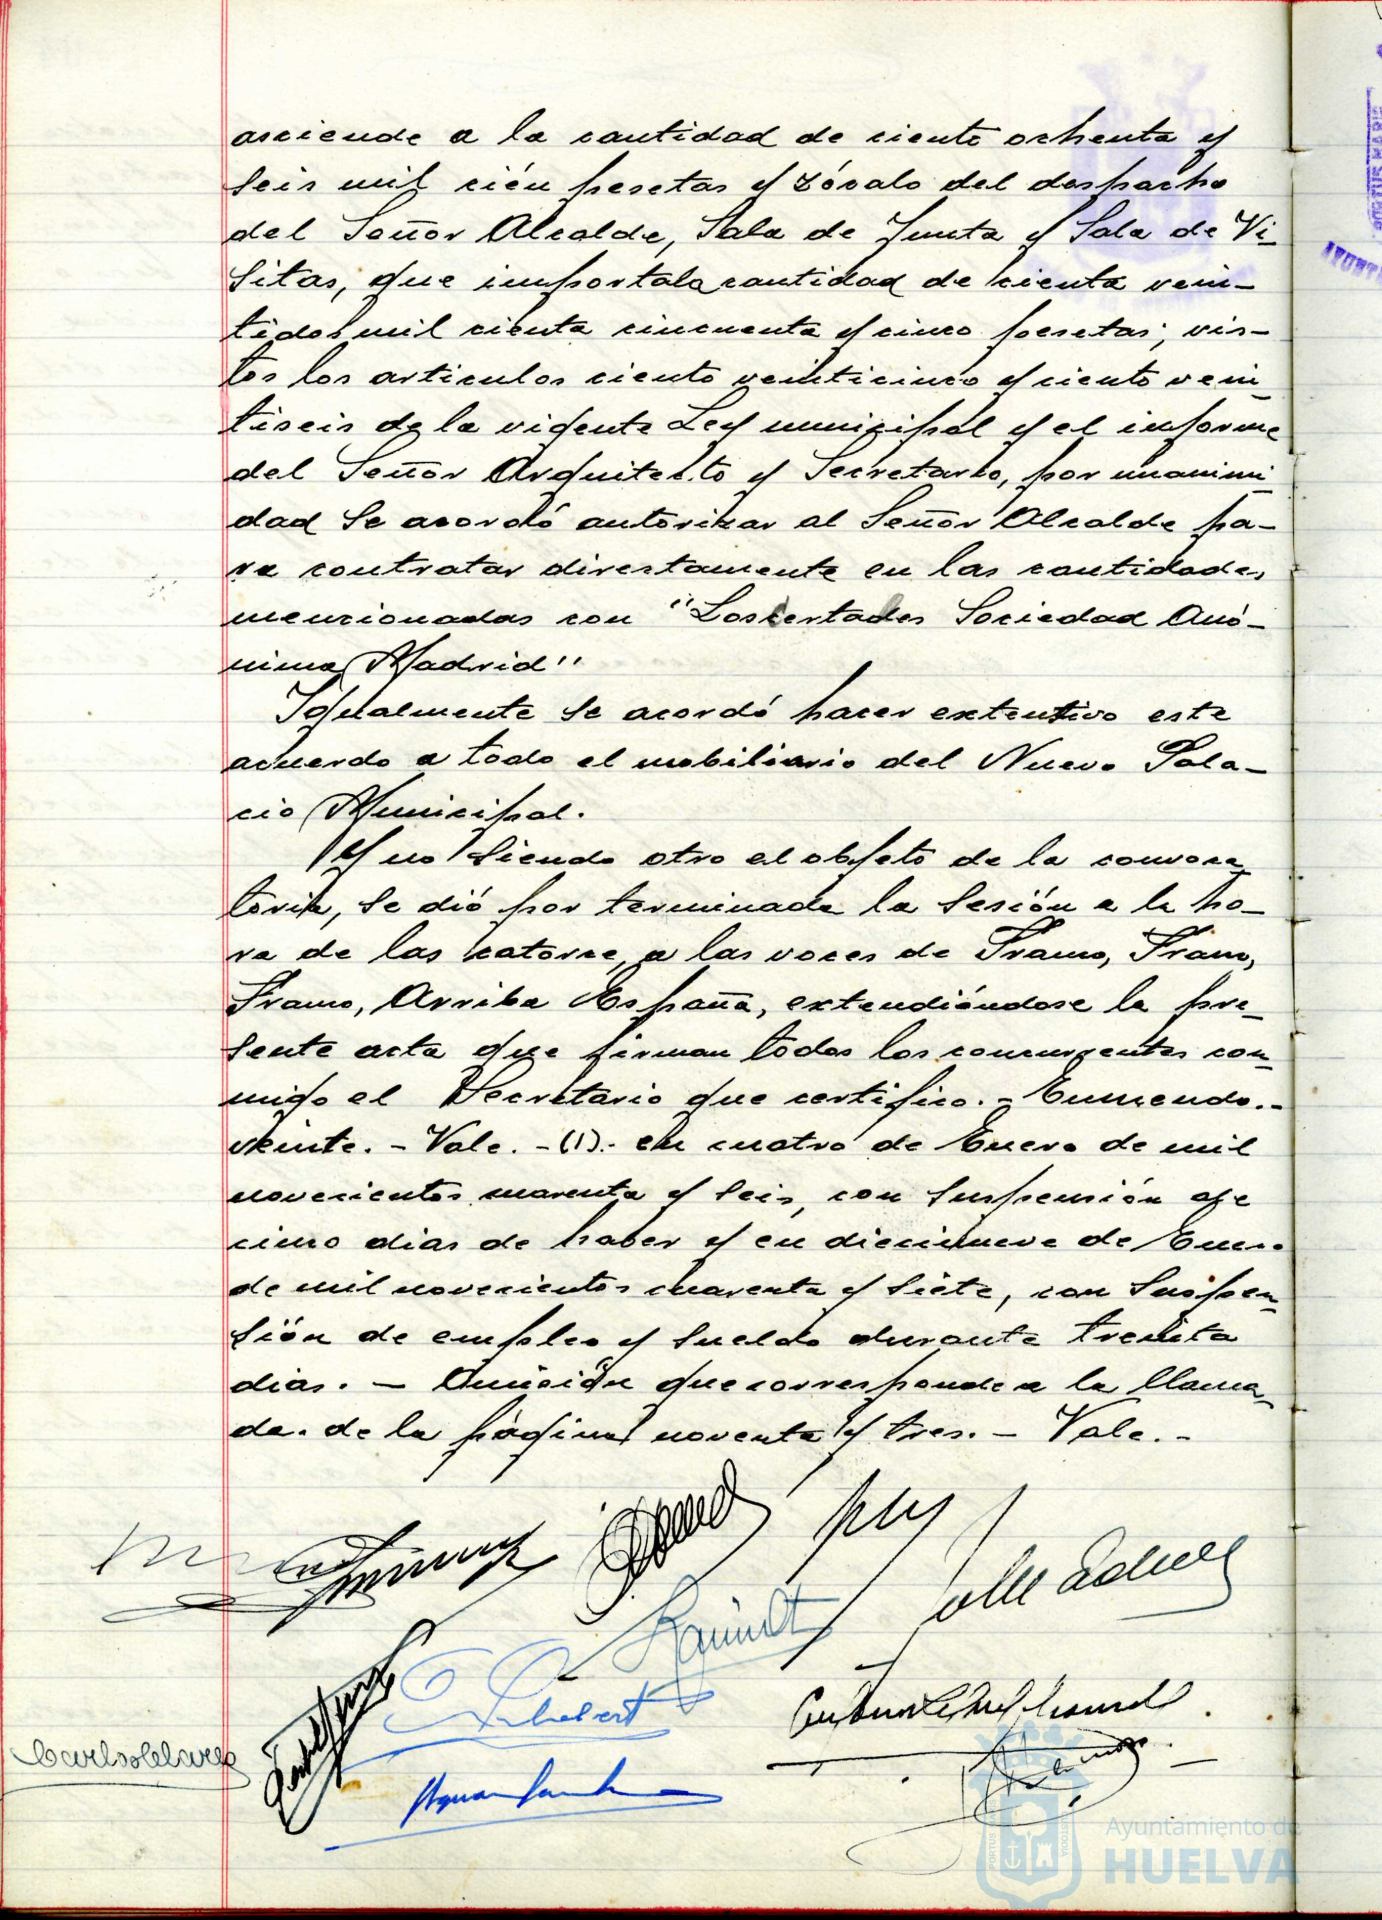 asciende a la cantidad de ciento ochenta y
seis mil cién pesetas y zócalo del despacho
del Señor Alcalde, Sala de Junta y Sala de Vi-
sitas, que importa la cantidad de ciento vein-
tidos mil ciento cincuenta y cinco pesetas; vis-
tos los articulos ciento veinticinco y ciento vein-
tiseis de la vigente Ley municipal y el informe
del Señor Arquitecto y Secretario, por unanimi-
dad se acordó autorizar al Señor Alcalde pa-
ra contratar directamente en las cantidades
mencionadas con "Loscertades Sociedad Anó-
nima Madrid"
Igualmente se acordó hacer extensivo este
acuerdo a todo el mobiliario del Nuevo Pala-
cio Municipal.
Y no siendo otro el objeto de la convoca-
toria, se dió por terminada la sesión a la ho-
ra de las catorce, a las voces de Franco, Franco,
Franco, Arriba España, extendiéndose la pre-
sente acta que firman todos los concurrentes con-
migo el Secretario que certifico. - Enmendo. -
veinte. - Vale. - (1). - en cuatro de Enero de mil
novecientos cuarenta y seis, con suspensión de
cinco dias de haber y en diecinueve de Enero
de mil novecientos cuarenta y siete, con suspen-
sión de empleo y sueldo durante treinta
dias. - Omisión que corresponde a la llama-
da. de la página noventa y tres. - Vale. -
Ayuntamiento de
HUELVA